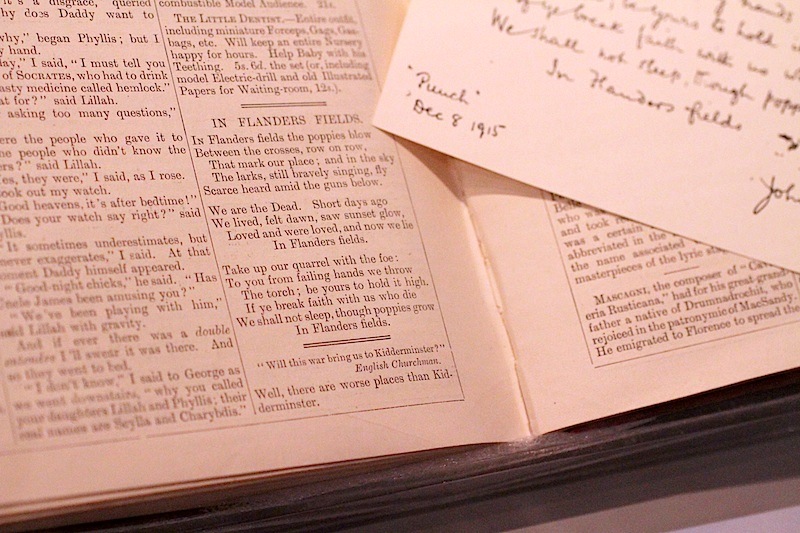 it's a disgrace," queried
why does Daddy want to
why," began Phyllis; but I
hand.
day," I said, "I must tell you
of SOCRATES, who had to drink
nasty medicine called hemlock."
at for?" said Lillah.
asking too many questions,"
ere the people who gave it to
he people who didn't know the
ers?" said Lillah.
es, they were," I said, as I rose.
took out my watch.
Good heavens, it's after bedtime!"
Does your watch say right?" said
yllis.
It sometimes underestimates, but
never exaggerates," I said. At that
moment Daddy himself appeared.
"Good-night chicks," he said. "Has
Uncle James been amusing you?"
"We've been playing with him,"
said Lillah with gravity.
And if ever there was a double
entendre I'll swear it was there. And
so they went to bed.
"I don't know," I said to George as
we went downstairs, "why you called
your daughters Lillah and Phyllis; their
real names are Scylla and Charybdis."
combustible Model Audience. 21s.
THE LITTLE DENTIST.—Entire outfit,
including miniature Forceps, Gags, Gas-
bags, etc. Will keep an entire Nursery
happy for hours. Help Baby with his
Teething. 5s. 6d. the set (or, including
model Electric-drill and old Illustrated
Papers for Waiting-room, 12s.).
IN FLANDERS FIELDS.
IN Flanders fields the poppies blow
Between the crosses, row on row,
That mark our place; and in the sky
The larks, still bravely singing, fly
Scarce heard amid the guns below.
We are the Dead. Short days ago
We lived, felt dawn, saw sunset glow,
Loved and were loved, and now we lie
In Flanders fields.
Take up our quarrel with the foe:
To you from failing hands we throw
The torch; be yours to hold it high.
If ye break faith with us who die
We shall not sleep, though poppies grow
In Flanders fields.
"Will this war bring us to Kidderminster?"
English Churchman.
Well, there are worse places than Kid-
derminster.
hands
yours to hold
break faith with us w
We shall not sleep, though popp
In Flanders fields
"Punch"
Dec 8 1915
John
who w
and took
was a certain
abbreviated in the
the name associated
masterpieces of the
MASCAGNI, the composer of "Cav
eria Rusticana," had for his great-grand
father a native of Drumnadrochit, who
rejoiced in the patronymic of MacSandy.
He emigrated to Florence to spread the